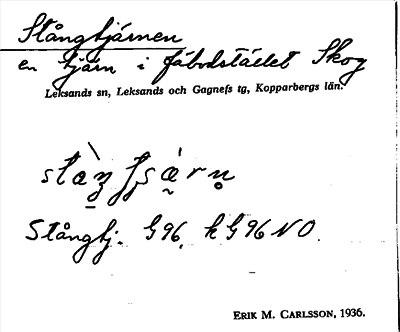 Stångtjärnen
en tjärn i fäbodstället Skog
Leksands sn, Leksands och Gagnefs tg, Kopparbergs län.
Stångtj. G96, k G96 NO.
ERIK M. CARLSSON, 1936.